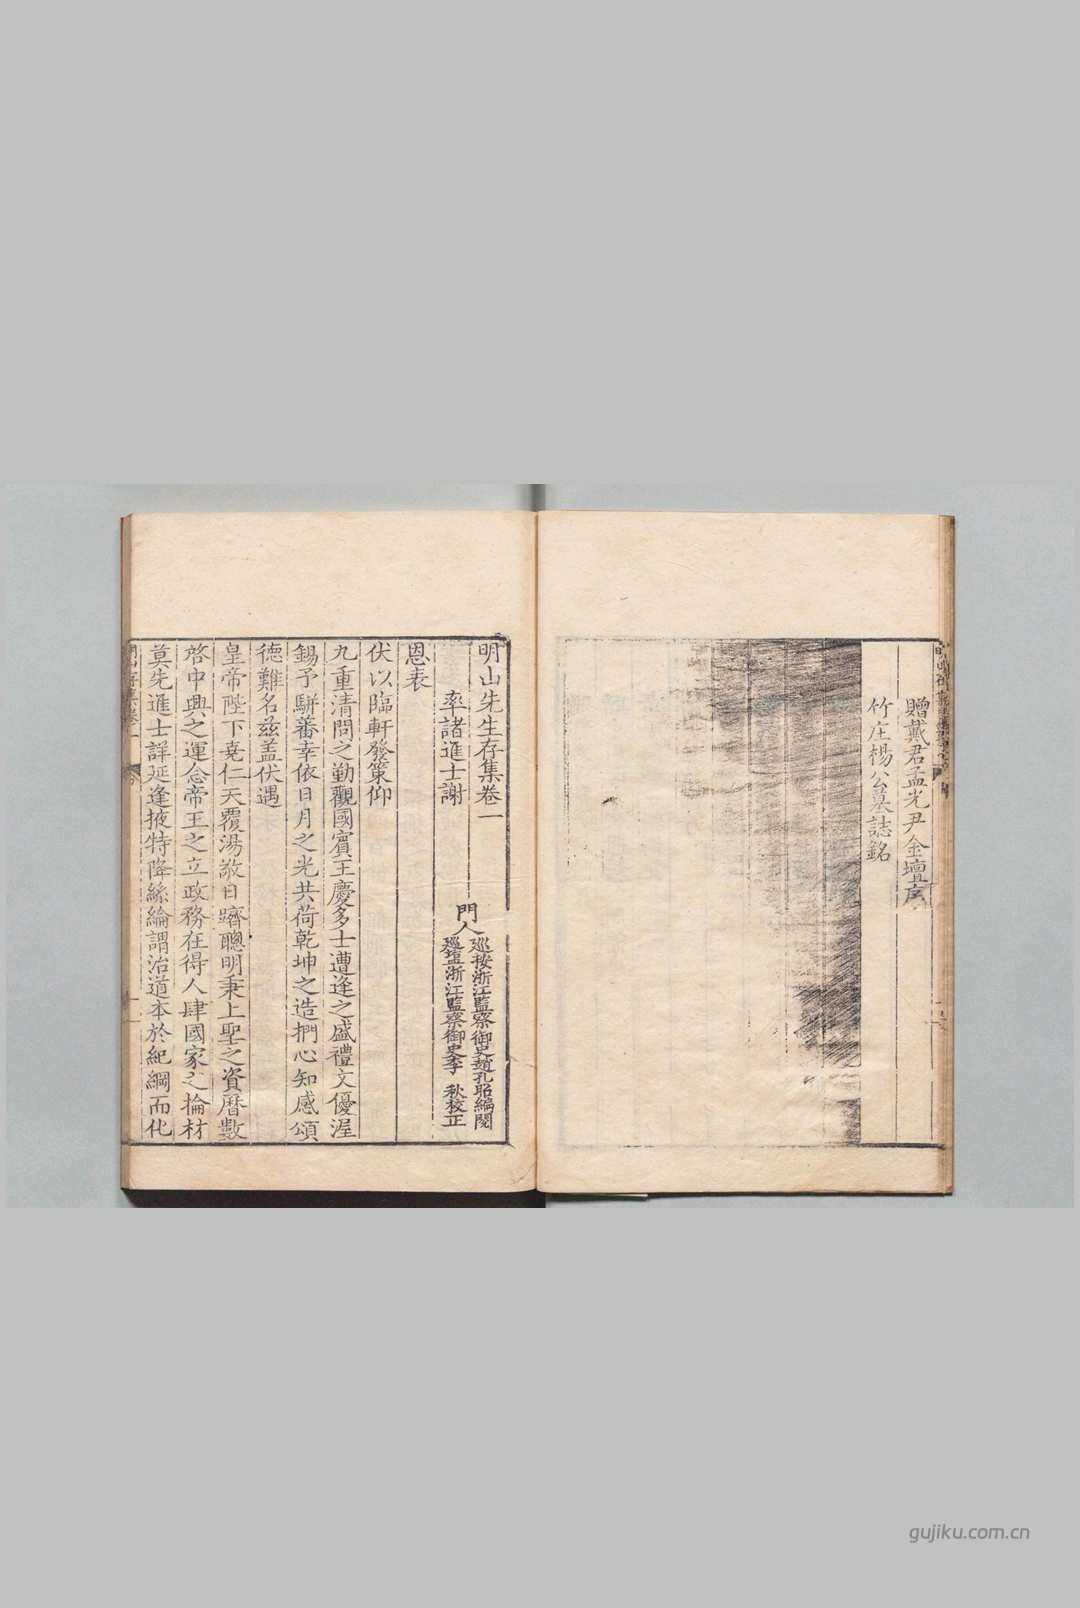 贈戴君孟光尹金壇序
竹庄楊公墓誌銘
明山先生存集卷一
門人
巡按浙江監察御史趙孔昭編閱
巡鹽浙江監察御史李 秋校正
率諸進士謝
恩表
伏以臨軒發策仰
九重清問之勤觀國賓王慶多士遭逢之盛禮文優渥
錫予駢蕃幸依日月之光共荷乾坤之造捫心知感頌
德難名茲盖伏遇
皇帝陛下堯仁天覆湯敬日躋聰明秉上聖之資曆數
啓中興之運念帝王之立政務在得人肆國家之掄材
莫先進士詳延逢掖特降絲綸謂治道本於紀綱而化
gujiku.com.cn